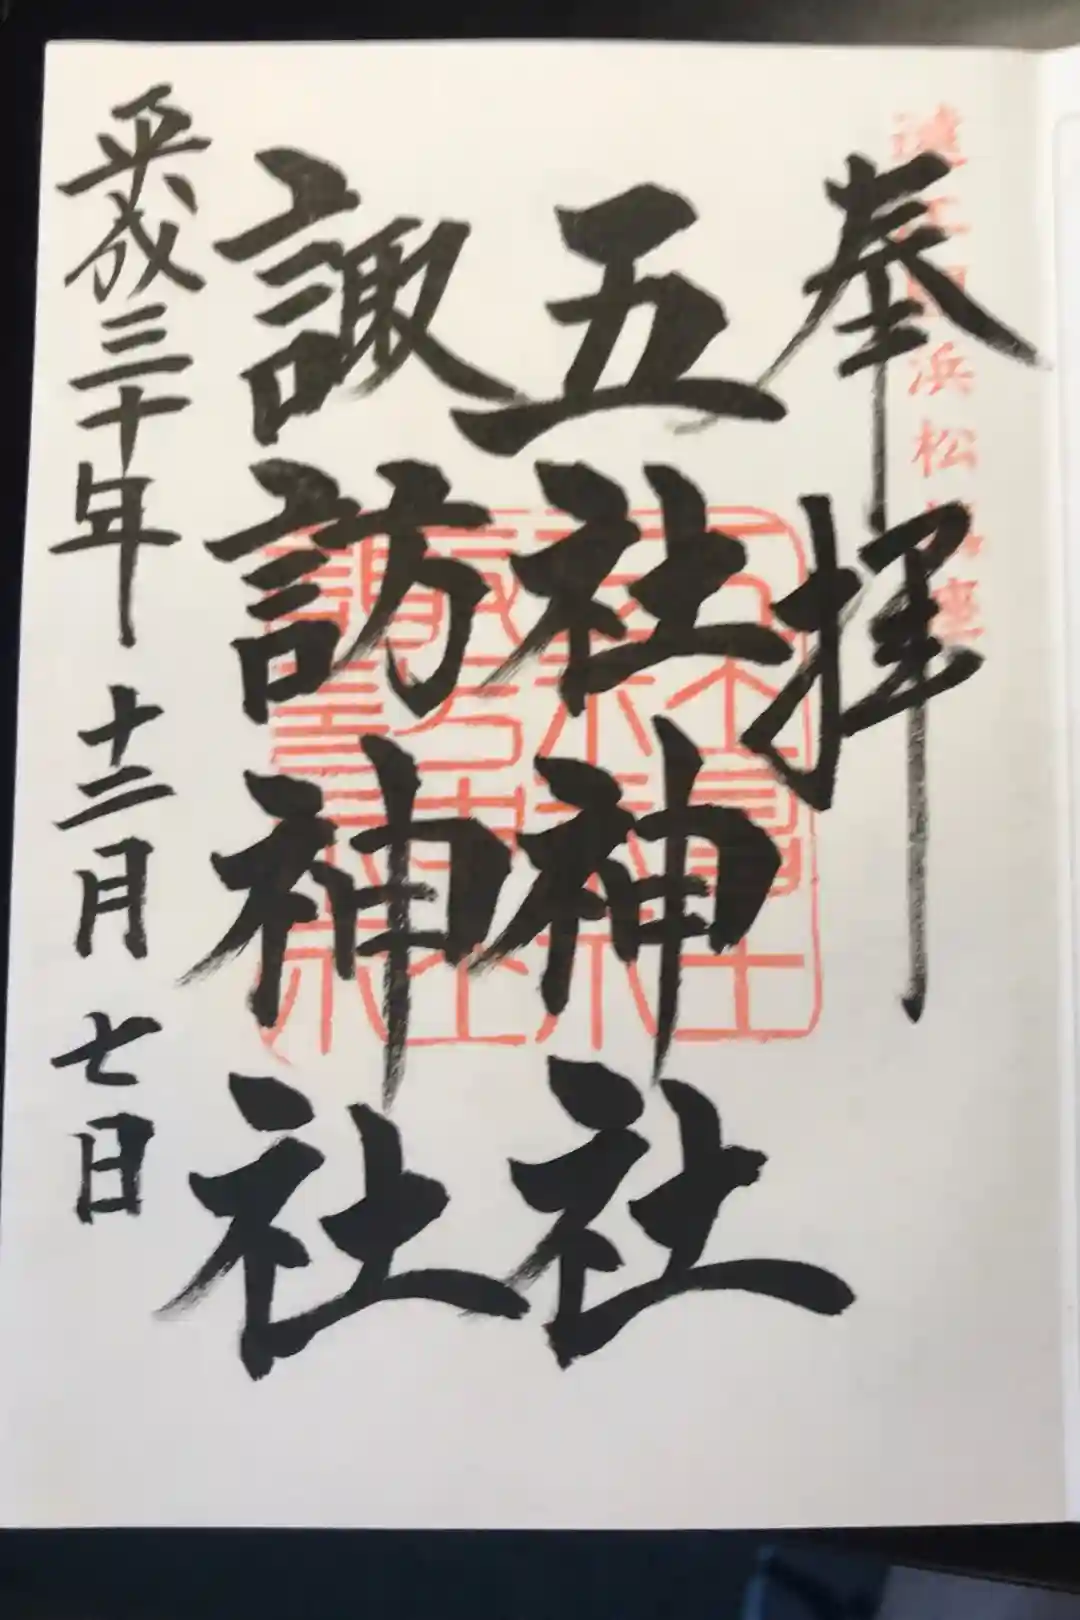 遠江国浜松鎮座
奉拝
五社神社
諏訪神社
平成三十年十二月七日